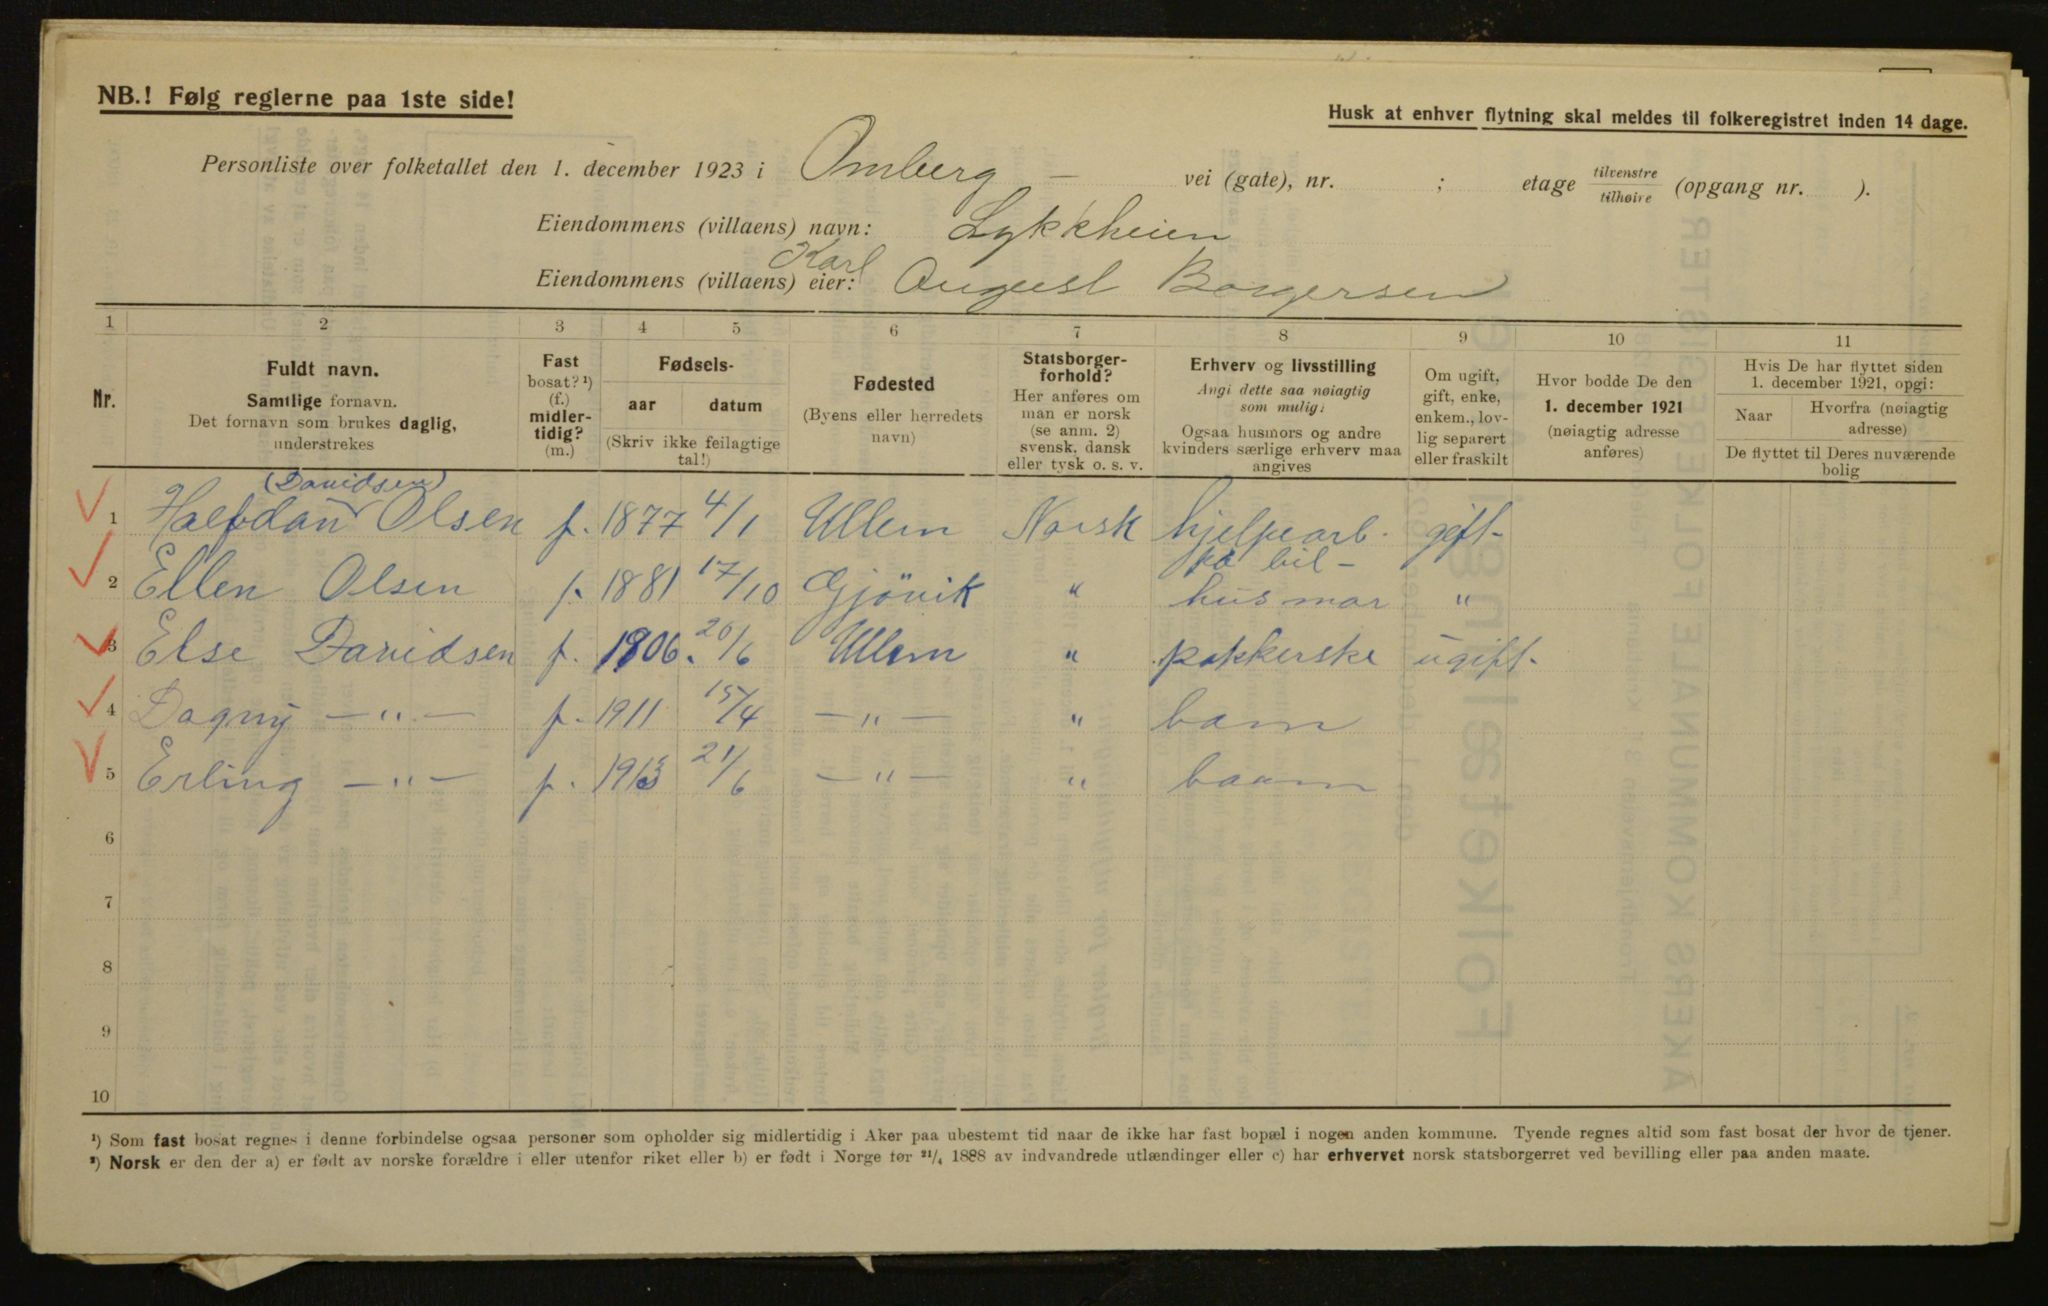 NB.! Følg reglerne paa 1ste side!
Husk at enhver flytning skal meldes til folkeregistret inden 14 dage.
Personliste over folketallet den 1. december 1923 i Omberg – vei (gate), nr. ; etage tilvenstre/tilhøire (opgang nr. ).
Eiendommens (villaens) navn: Lykkheien
Eiendommens (villaens) eier: Karl August Borgersen
1 2 3 4 5 6 7 8 9 10 11
Nr.
Fuldt navn.
Samtlige fornavn.
Det fornavn som brukes daglig,
understrekes
Fast
bosat? ¹)
(f.)
midler-
tidig?
(m.)
Fødsels-
aar datum
(Skriv ikke feilagtige
tal!)
Fødested
(Byens eller herredets
navn)
Statsborger-
forhold?
Her anføres om
man er norsk
(se anm. 2)
svensk, dansk
eller tysk o. s. v.
Erhverv og livsstilling
Angi dette saa nøiagtig
som mulig:
Ogsaa husmors og andre
kvinders særlige erhverv maa
angives
Om ugift,
gift, enke,
enkem., lov-
lig separert
eller fraskilt
Hvor bodde De den
1. december 1921
(nøiagtig adresse
anføres)
Hvis De har flyttet siden
1. december 1921, opgi:
Naar Hvorfra (nøiagtig
adresse)
De flyttet til Deres nuværende
bolig
(Davidsen)
1 Halfdan Olsen f. 1877 4/1 Ullern Norsk hjelpearb. gift-
på bil -
2 Ellen Olsen f. 1881 17/10 Gjövik " husmor "
3 Else Davidsen f. 1906. 20/6 Ullern " pakkerske ugift.
4 Dagny — " — f. 1911 15/4 — " — " barn
5 Erling — " — f. 21/6 — " — " baarn
6
7
8
9
10
¹) Som fast bosat regnes i denne forbindelse ogsaa personer som opholder sig midlertidig i Aker paa ubestemt tid naar de ikke har fast bopæl i nogen anden kommune. Tyende regnes altid som fast bosat der hvor de tjener.
²) Norsk er den der a) er født av norske forældre i eller utenfor riket eller b) er født i Norge før 21/4 1888 av indvandrede utlændinger eller c) har erhvervet norsk statsborgerret ved bevilling eller paa anden maate.